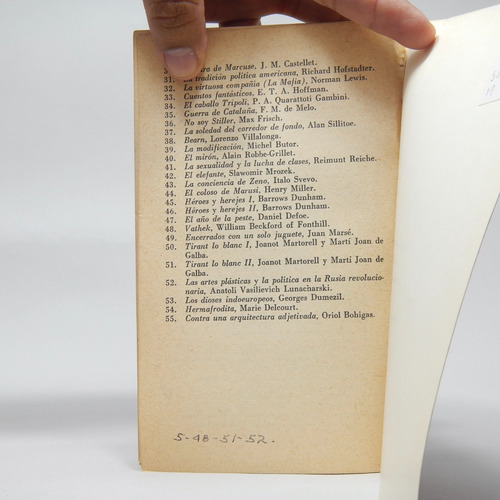 ra de Marcuse, J. M. Castellet.
31. La tradición política americana, Richard Hofstadter.
32. La virtuosa compañía (La Mafia), Norman Lewis.
33. Cuentos fantásticos, E. T. A. Hoffman.
34. El caballo Trípoli, P. A. Quarattoti Gambini.
35. Guerra de Cataluña, F. M. de Melo.
36. No soy Stiller, Max Frisch.
37. La soledad del corredor de fondo, Alan Sillitoe.
38. Bearn, Lorenzo Villalonga.
39. La modificación, Michel Butor.
40. El mirón, Alain Robbe-Grillet.
41. La sexualidad y la lucha de clases, Reimunt Reiche.
42. El elefante, Slawomir Mrozek.
43. La conciencia de Zeno, Italo Svevo.
44. El coloso de Marusi, Henry Miller.
45. Héroes y herejes I, Barrows Dunham.
46. Héroes y herejes II, Barrows Dunham.
47. El año de la peste, Daniel Defoe.
48. Vathek, William Beckford of Fonthill.
49. Encerrados con un solo juguete, Juan Marsé.
50. Tirant lo blanc I, Joanot Martorell y Martí Joan de
Galba.
51. Tirant lo blanc II, Joanot Martorell y Martí Joan de
Galba.
52. Las artes plásticas y la política en la Rusia revolucio-
naria, Anatoli Vasilievich Lunacharski.
53. Los dioses indoeuropeos, Georges Dumezil.
54. Hermafrodita, Marie Delcourt.
55. Contra una arquitectura adjetivada, Oriol Bohigas.
5-48-51-52.